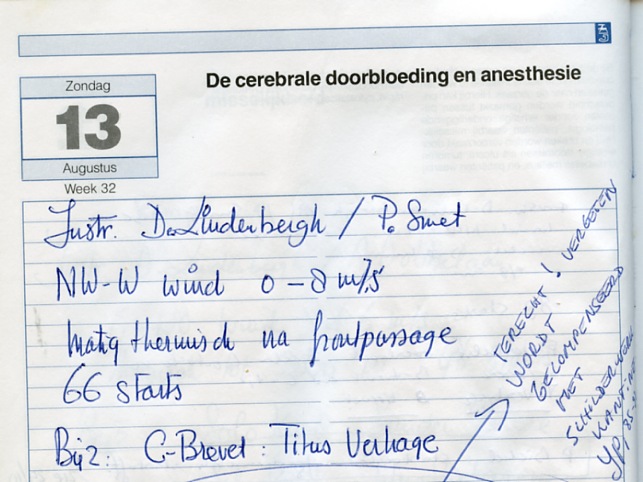 De cerebrale doorbloeding en anesthesie
Zondag
13
Augustus
Week 32
Instr. D. Lindenbergh / P. Smet
NW-W wind 0-8 m/s
Matig thermisch na frontpassage
66 starts
Bijz: C-Brevet: Titus Verhage
TERECHT! VERGETEN
WORDT
GECOMPENSEERD
MET
SCHILDERWERK
KANTINE